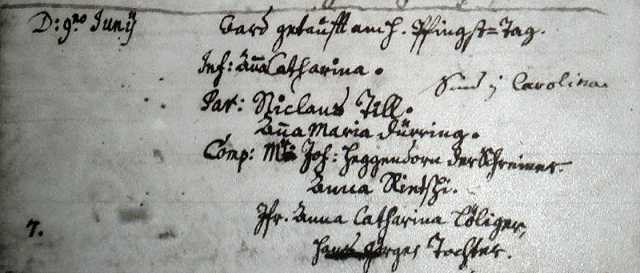 D: 9.no Junÿ Ward getaufft am h. Pfingst=Tag.
Inf: Aña Catharina.
Sind 7 Carolina.
Par: Niclaus Till.
Aña Maria Dürring.
Comp: Mr. Joh: Heggendorn der Schreiner.
Anna Rietschi.
7. Jfr. Anna Catharina Löliger,
Hans Jörgen Tochter.